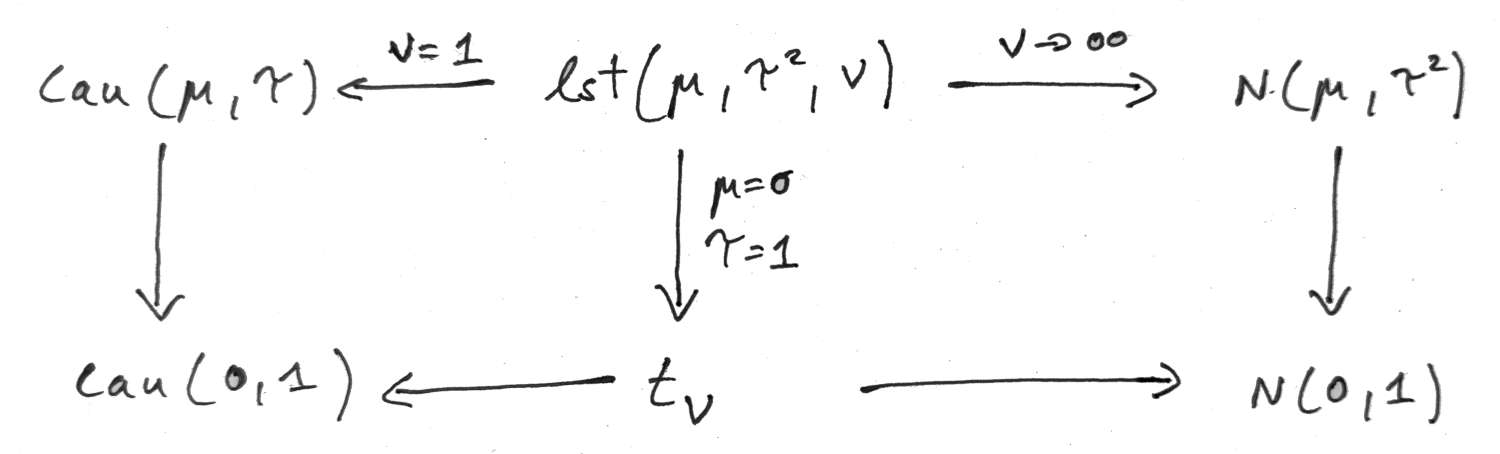 Cau(μ, τ) ← ν=1 lst(μ, τ², ν) ν→∞ → N(μ, τ²)
μ=0
τ=1
Cau(0,1) ← t_ν → N(0,1)